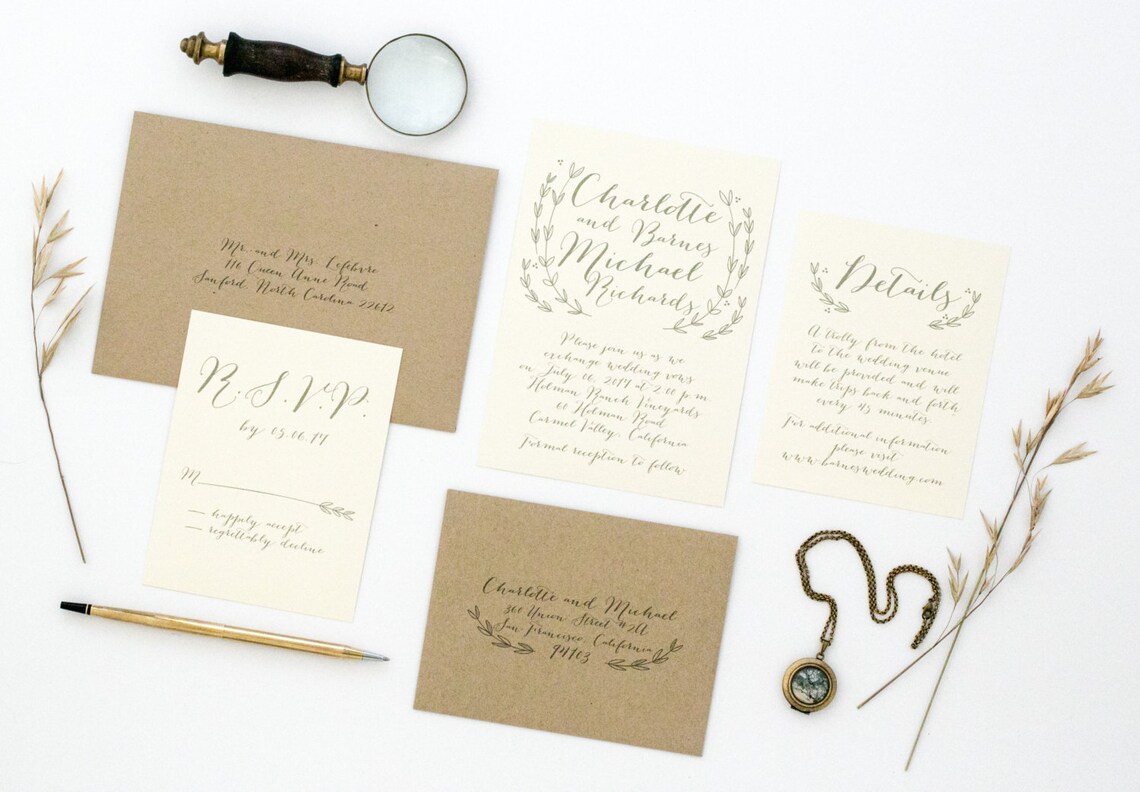 Mr. and Mrs. Lefebvre
116 Queen Anne Road
Sanford, North Carolina 22612
R.S.V.P.
by 05.06.14
M
happily accept
regrettably decline
Charlotte
and Barnes
Michael
Richards
Please join us as we
exchange wedding vows
on July 06, 2014 at 2:00 p.m.
Holman Ranch Vineyards
60 Holman Road
Carmel Valley, California
Formal reception to follow
Details
A trolly from the hotel
to the wedding venue
will be provided and will
make trips back and forth
every 45 minutes
For additional information
please visit
www.barneswedding.com
Charlotte and Michael
360 Union Street #2A
San Francisco, California
94103